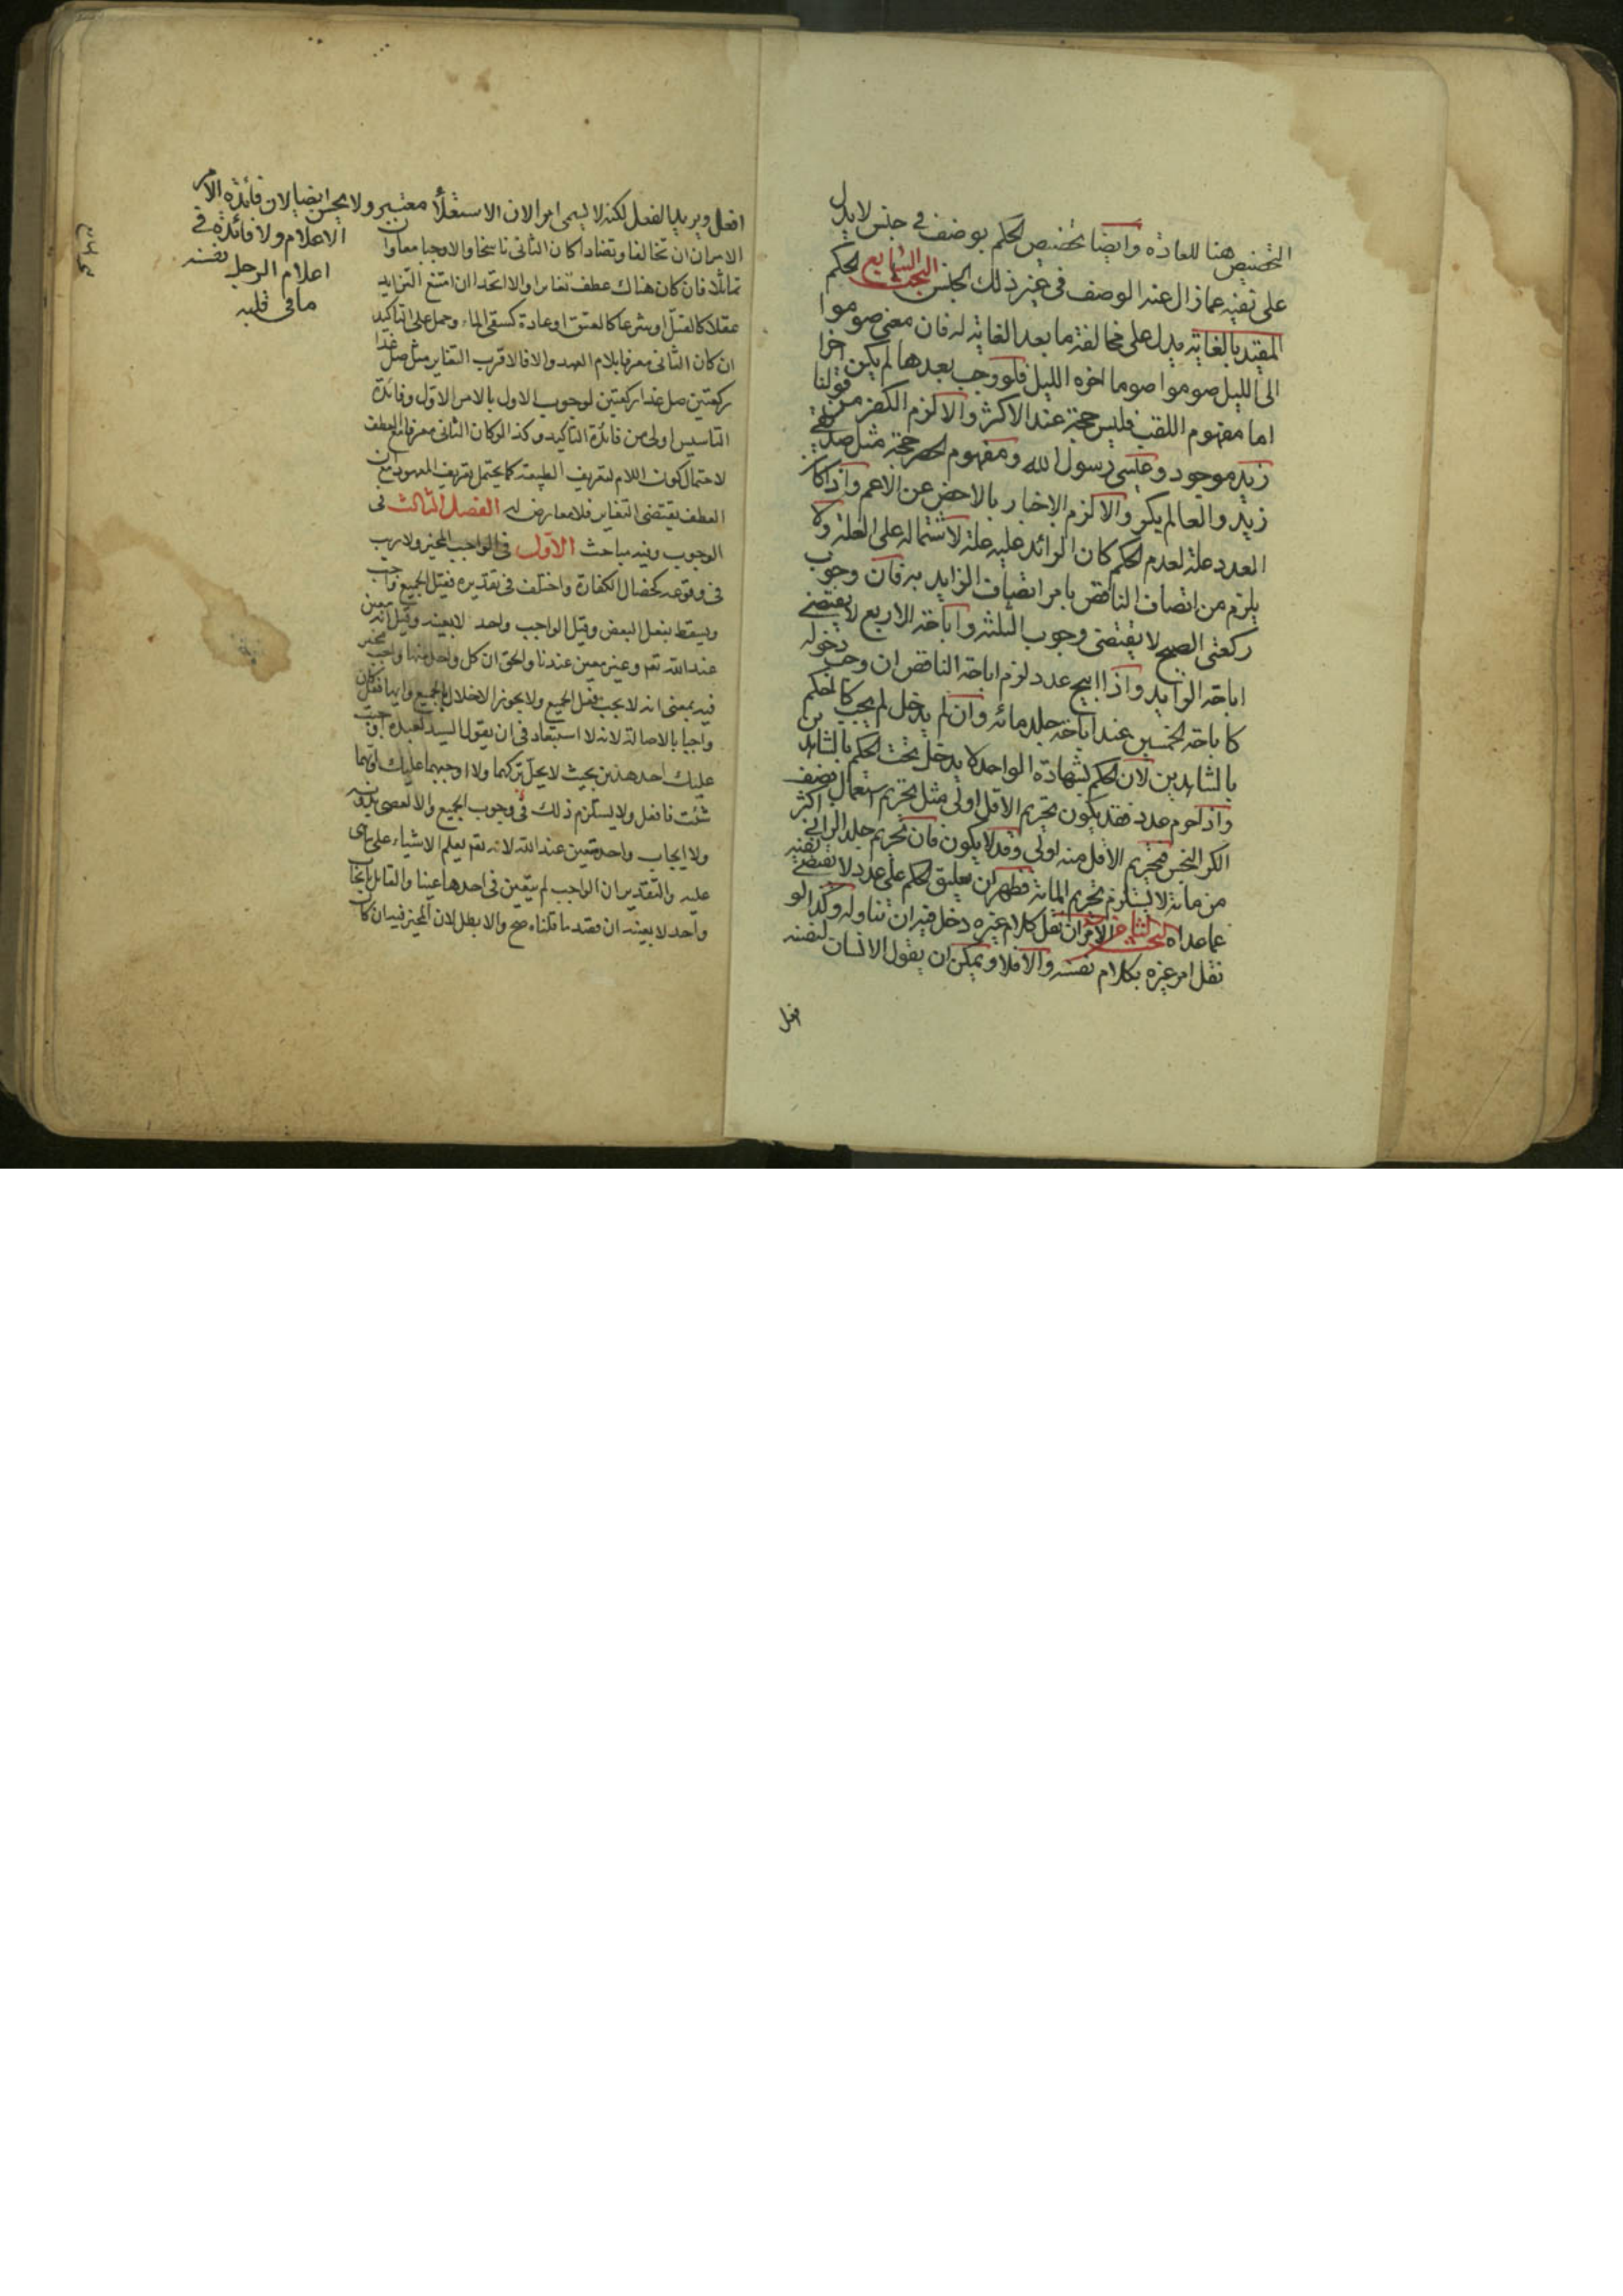 التخصيص هنا للعادة وايضا تخصيص الحكم بوصف في جنس لا يدل
على نفيه عما زال عنه الوصف في غير ذلك الجنس البحث السابع الحكم
المقيد بالغاية يدل على مخالفة ما بعد الغاية له فان معنى صوموا
الى الليل صوموا صوما اخره الليل فلو وجب بعدها لم يكن اخرا
اما مفهوم اللقب فليس حجة عند الاكثر والا لزم الكفر من قولنا
زيد موجود وعيسى رسول الله ومفهوم الحصر حجة مثل صديقي
زيد والعالم بكر والا لزم الاخبار بالاخص عن الاعم واذا كان
العدد علة لعدم الحكم كان الزائد عليه علة لاشتماله على العلة ولا
يلزم من اتصاف الناقص بامر اتصاف الزايد به فان وجوب
ركعتى الصبح لا يقتضى وجوب الثلثة واباحة الاربع لا يقتضى
اباحة الزايد واذا ابيح عدد لزم اباحة الناقص ان وجب دخوله
كاباحة الخمسين عند اباحة جلد مائه وان لم يدخل لم يجب كالحكم
بالشاهدين لان الحكم بشهادة الواحد لا يدخل تحت الحكم بالشاهدين
واذا حرم عدد فقد يكون تحريم الاقل اولى مثل تحريم استعمال نصف
الكر النجس فتحريم الاقل منه اولى وقد لا يكون فان تحريم جلد الزاني اكثر
من مائة لا يستلزم تحريم المائة فظهر ان تعليق الحكم على عدد لا يقتضى نفيه
عما عداه البحث الثامن الامر ان نقل كلام غيره دخل فيه ان تناوله وكذا لو
نقل امر غيره بكلام نفسه والا فلا ويمكن ان يقول الانسان لنفسه
افعل
افعل ويريد الفعل لكنه لا يسمى امرا لان الاستعلاء معتبر ولا يحسن ايضا لان فائدة الامر
الاعلام ولا فائدة في
اعلام الرجل نفسه
ما في قلبه
الامران ان تخالفا وتضادا كان الثاني ناسخا والا وجبا معا وان
تماثلا فان كان هناك عطف تغايرا والا اتحدا ان امتنع التزايد
عقلا كالقتل او شرعا كالعتق او عادة كسقى الماء وحمل على التاكيد
ان كان الثانى معرفا بلام العهد والا فالاقرب التغاير مثل صل غدا
ركعتين صل غدا ركعتين لوجوب الاول بالامر الاول وفائدة
التاسيس اولى من فائدة التاكيد وكذا لو كان الثانى معرفا مع العطف
لاحتمال كون اللام لتعريف الطبيعة كما يحتمل تعريف المعهود مع ان
العطف يقتضى التغاير فلا معارض له الفصل الثالث فى
الوجوب وفيه مباحث الاول فى الواجب المخير ولا ريب
فى وقوعه كخصال الكفارة واختلف فى تقديره فقيل الجميع واجب
ويسقط بفعل البعض وقيل الواجب واحد لا بعينه وقيل انه معين
عند الله تعم وغير معين عندنا والحق ان كل واحد منها واجب مخير
فيه بمعنى انه لا يجب فعل الجميع ولا يجوز الاخلال بالجميع وايها فعل كان
واجبا بالاصالة لانه لا استبعاد فى ان يقول السيد لعبده اوجبت
عليك احد هذين بحيث لا يحل تركهما ولا اوجبهما عليك وايهما
شئت فافعل ولا يستلزم ذلك وجوب الجميع والا لعصى بتركه
ولا ايجاب واحد معين عند الله لانه تعم يعلم الاشياء على ما هى
عليه والتقدير ان الواجب لم يتعين فى احدها عينا والقايل بايجاب
واحد لا بعينه ان قصد ما قلناه صح والا بطل لان المخير فيه ان كان